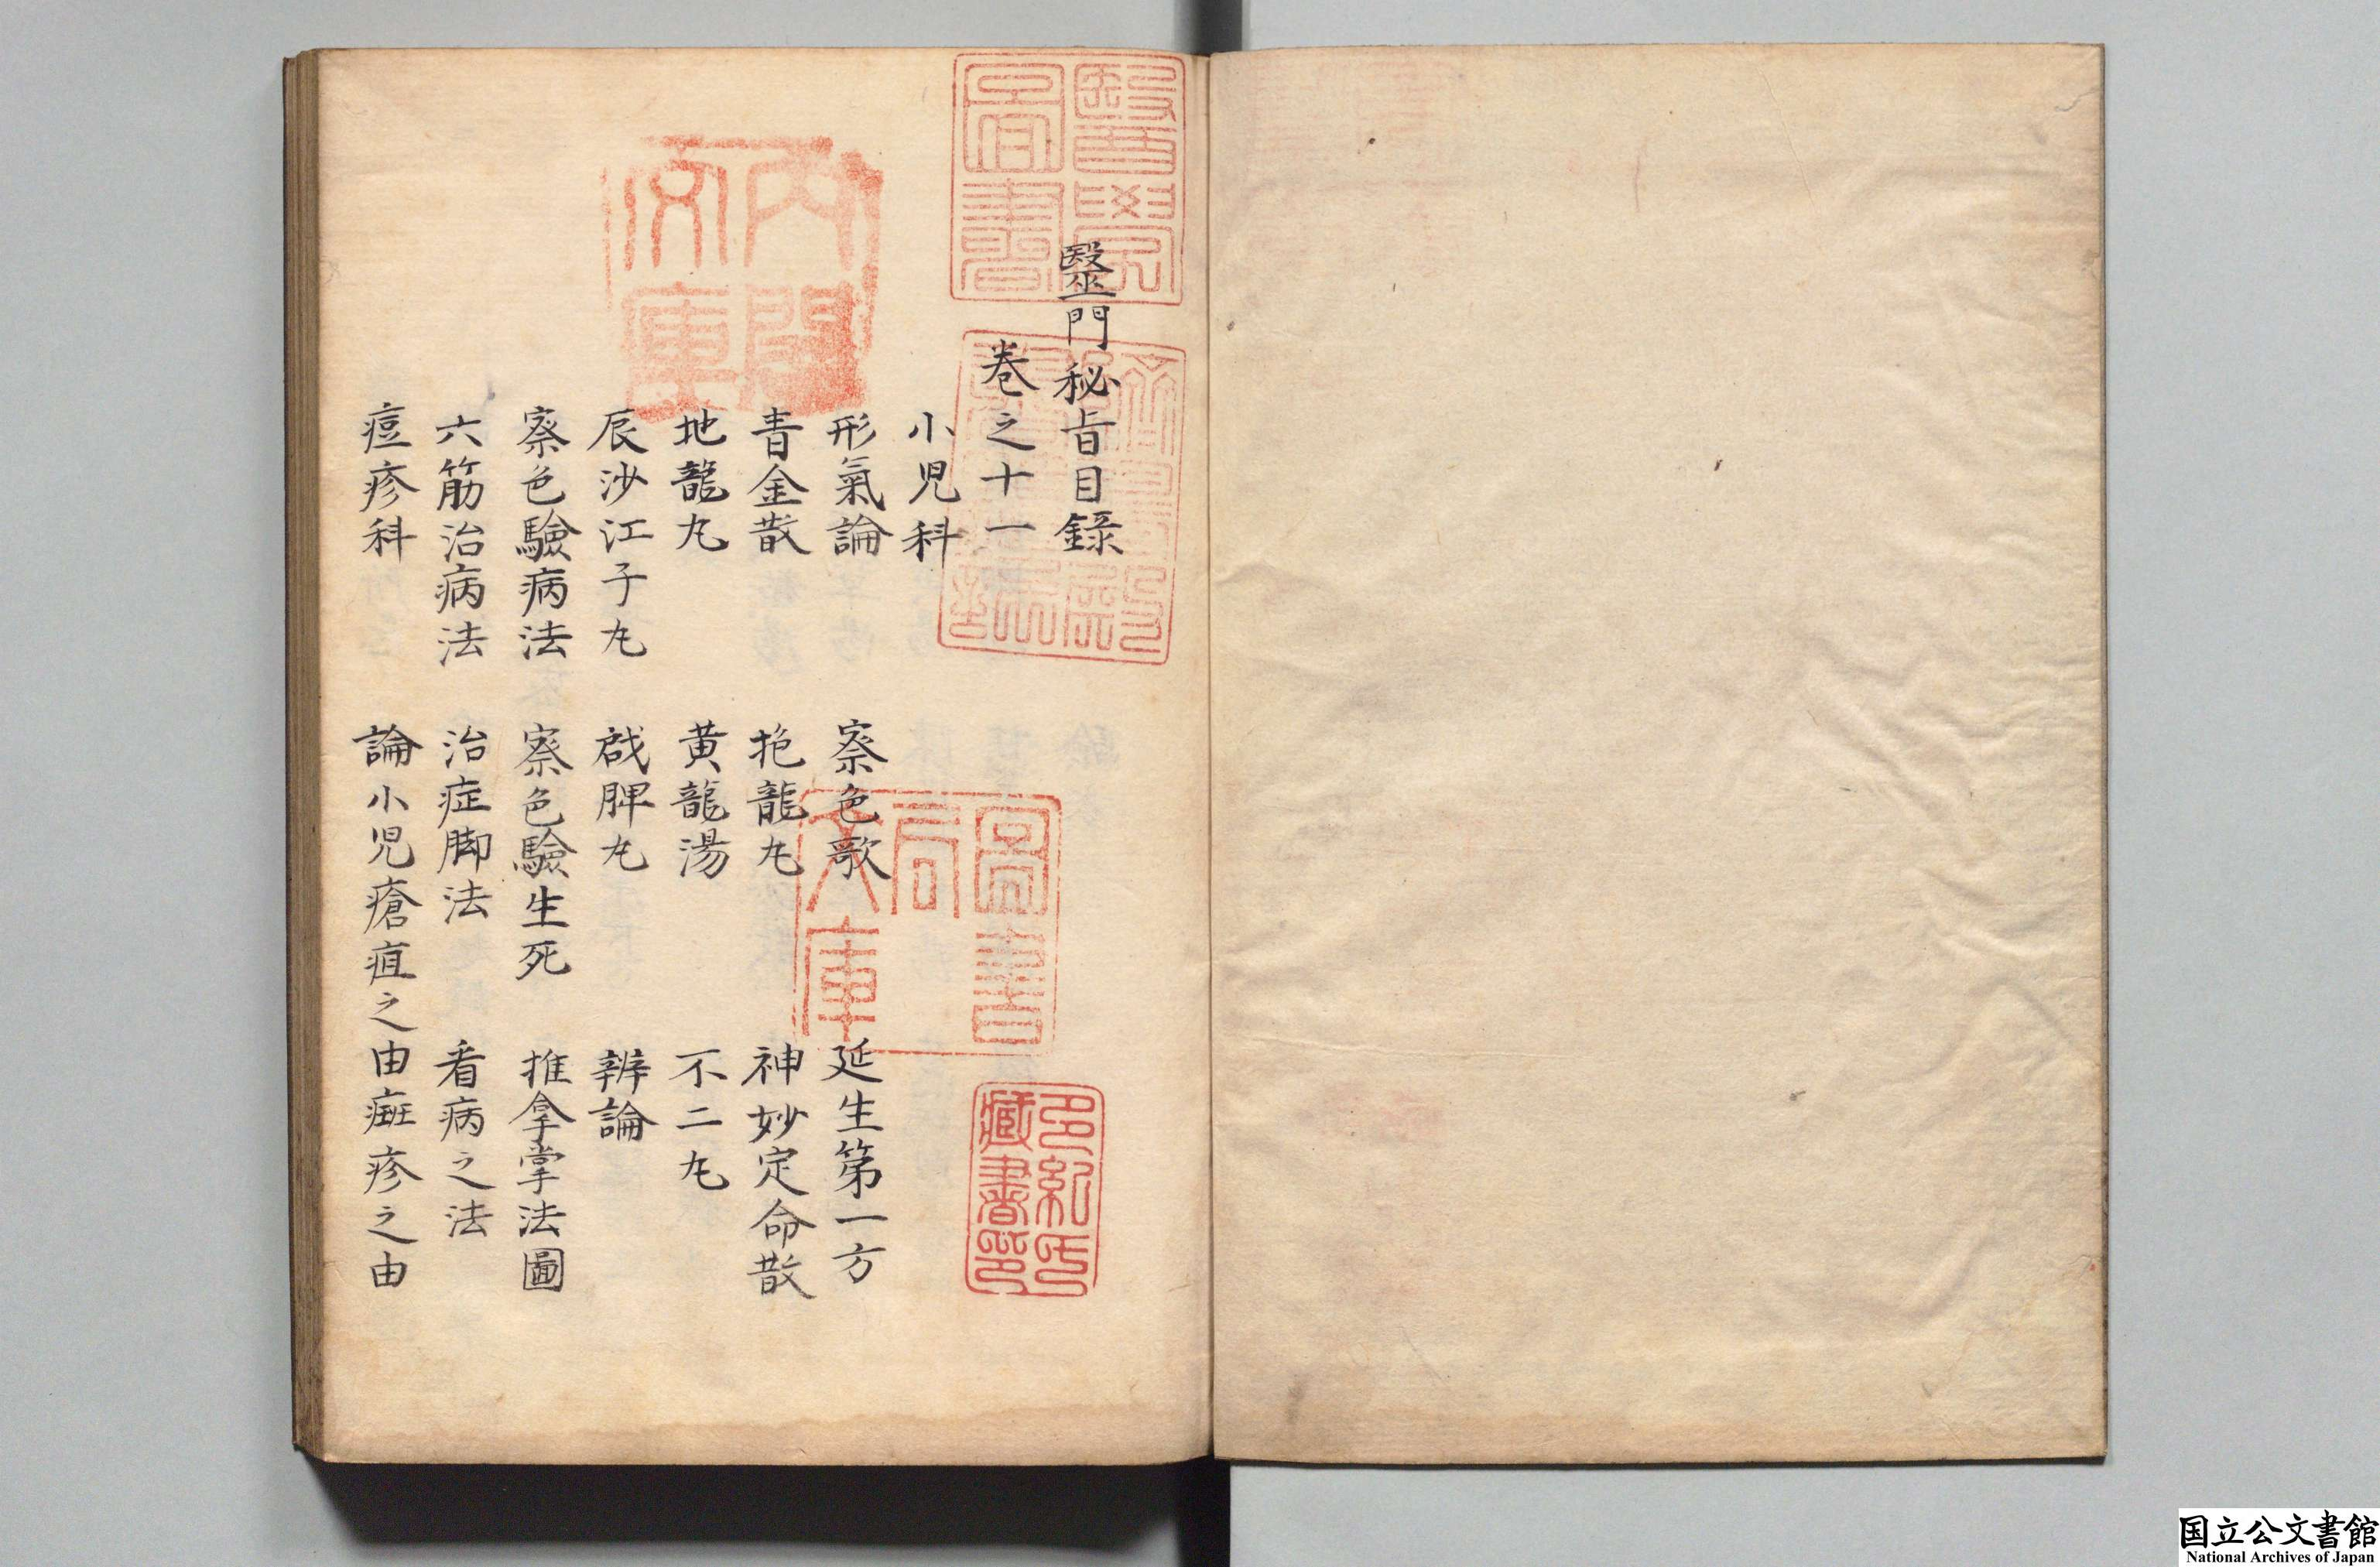 毉門秘旨目録
卷之十一
小児科
形氣論　察色歌　延生第一方
青金散　抱龍丸　神妙定命散
地龍丸　黄龍湯　不二丸
辰沙江子丸　啟脾丸　辨論
察色驗病法　察色驗生死　推拿掌法圖
六筋治病法　治症脚法　看病之法
痘疹科　論小児瘡疽之由　痳疹之由
醫學圖書
躋壽殿書籍記
内閣文庫
圖書局文庫
多紀氏藏書印
国立公文書館
National Archives of Japan